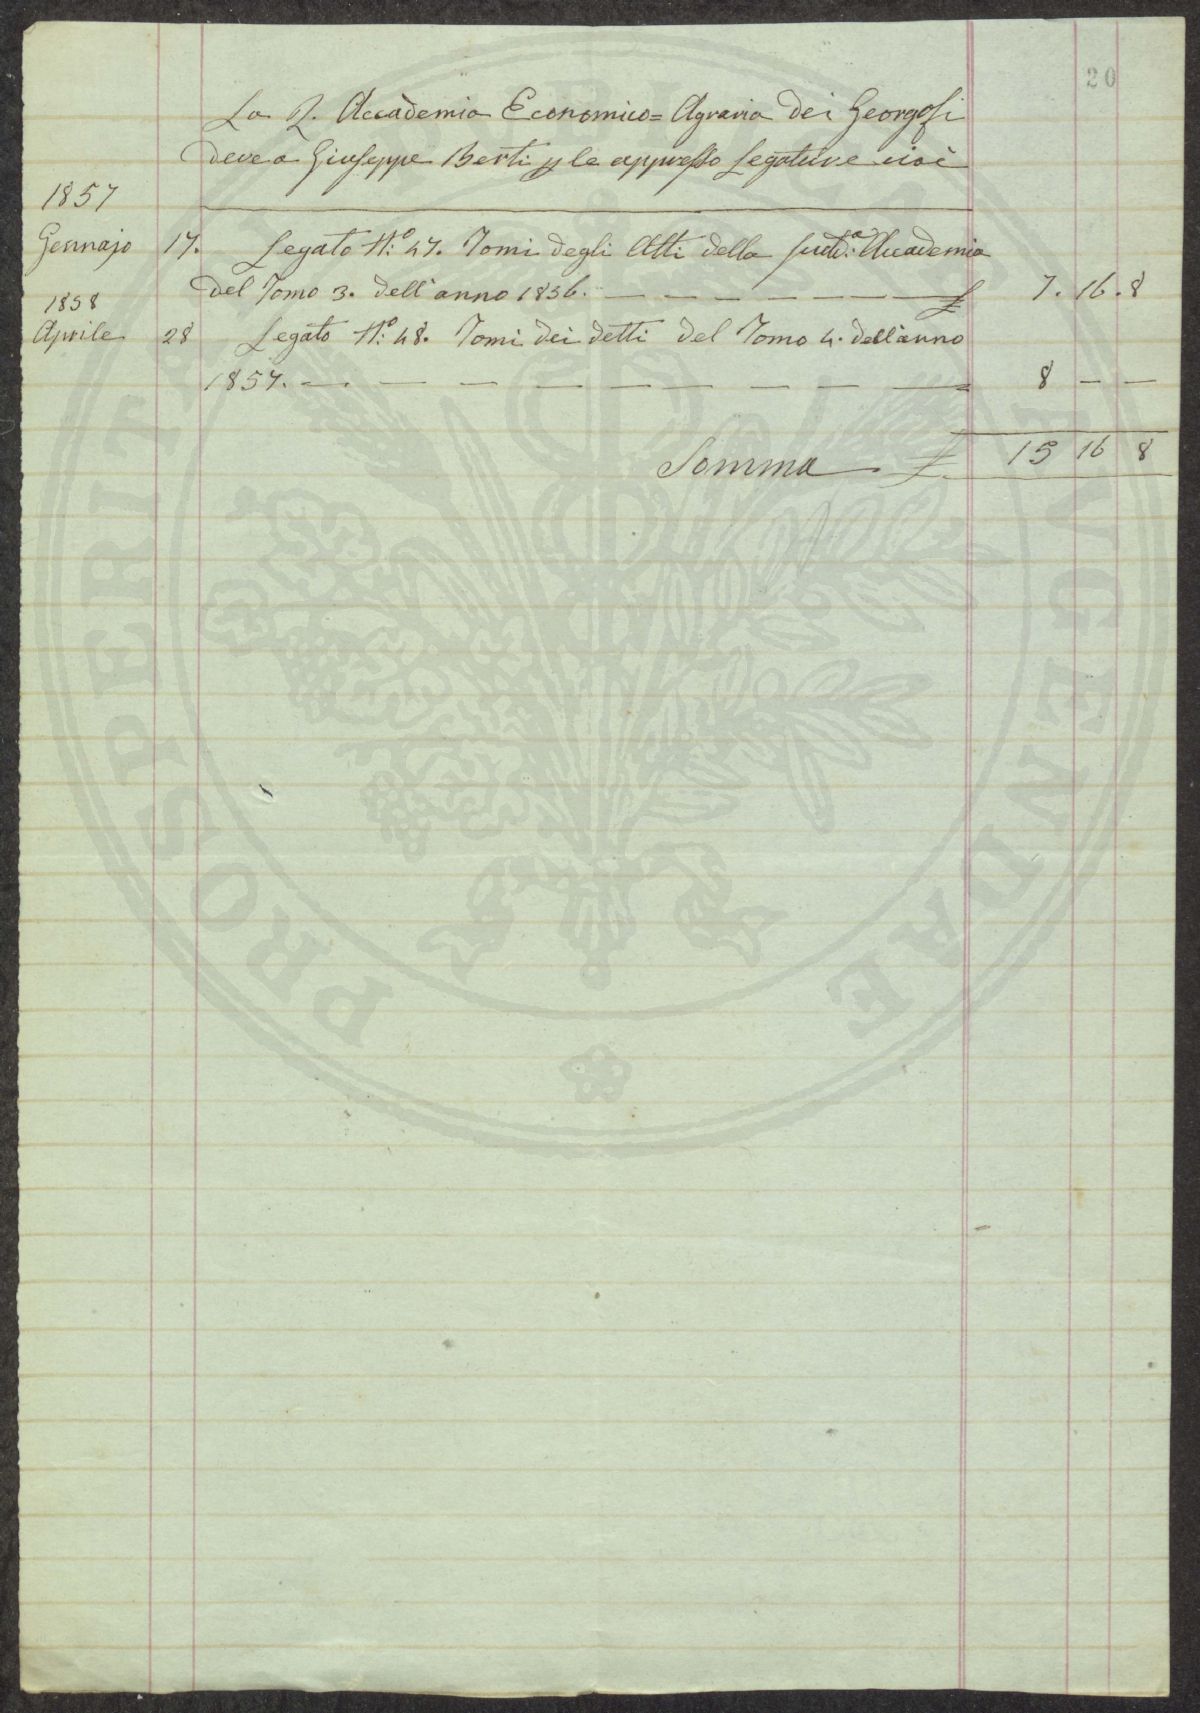 20
La R. Accademia Economico=Agraria dei Georgofi
deve a Giuseppe Berti p le appresso Legature cioè
1857
Gennajo 17. Legato N.o 47. Tomi degli Atti della sudd.a Accademia
del Tomo 3. dell'anno 1856. — — — — — — — £ 7. 16. 8
1858
Aprile 28 Legato N.o 48. Tomi dei detti del Tomo 4. dell'anno
1857. — — — — — — — — — 8 — —
Somma £ 15 16 8
PROSPERITATI AVGENDAE